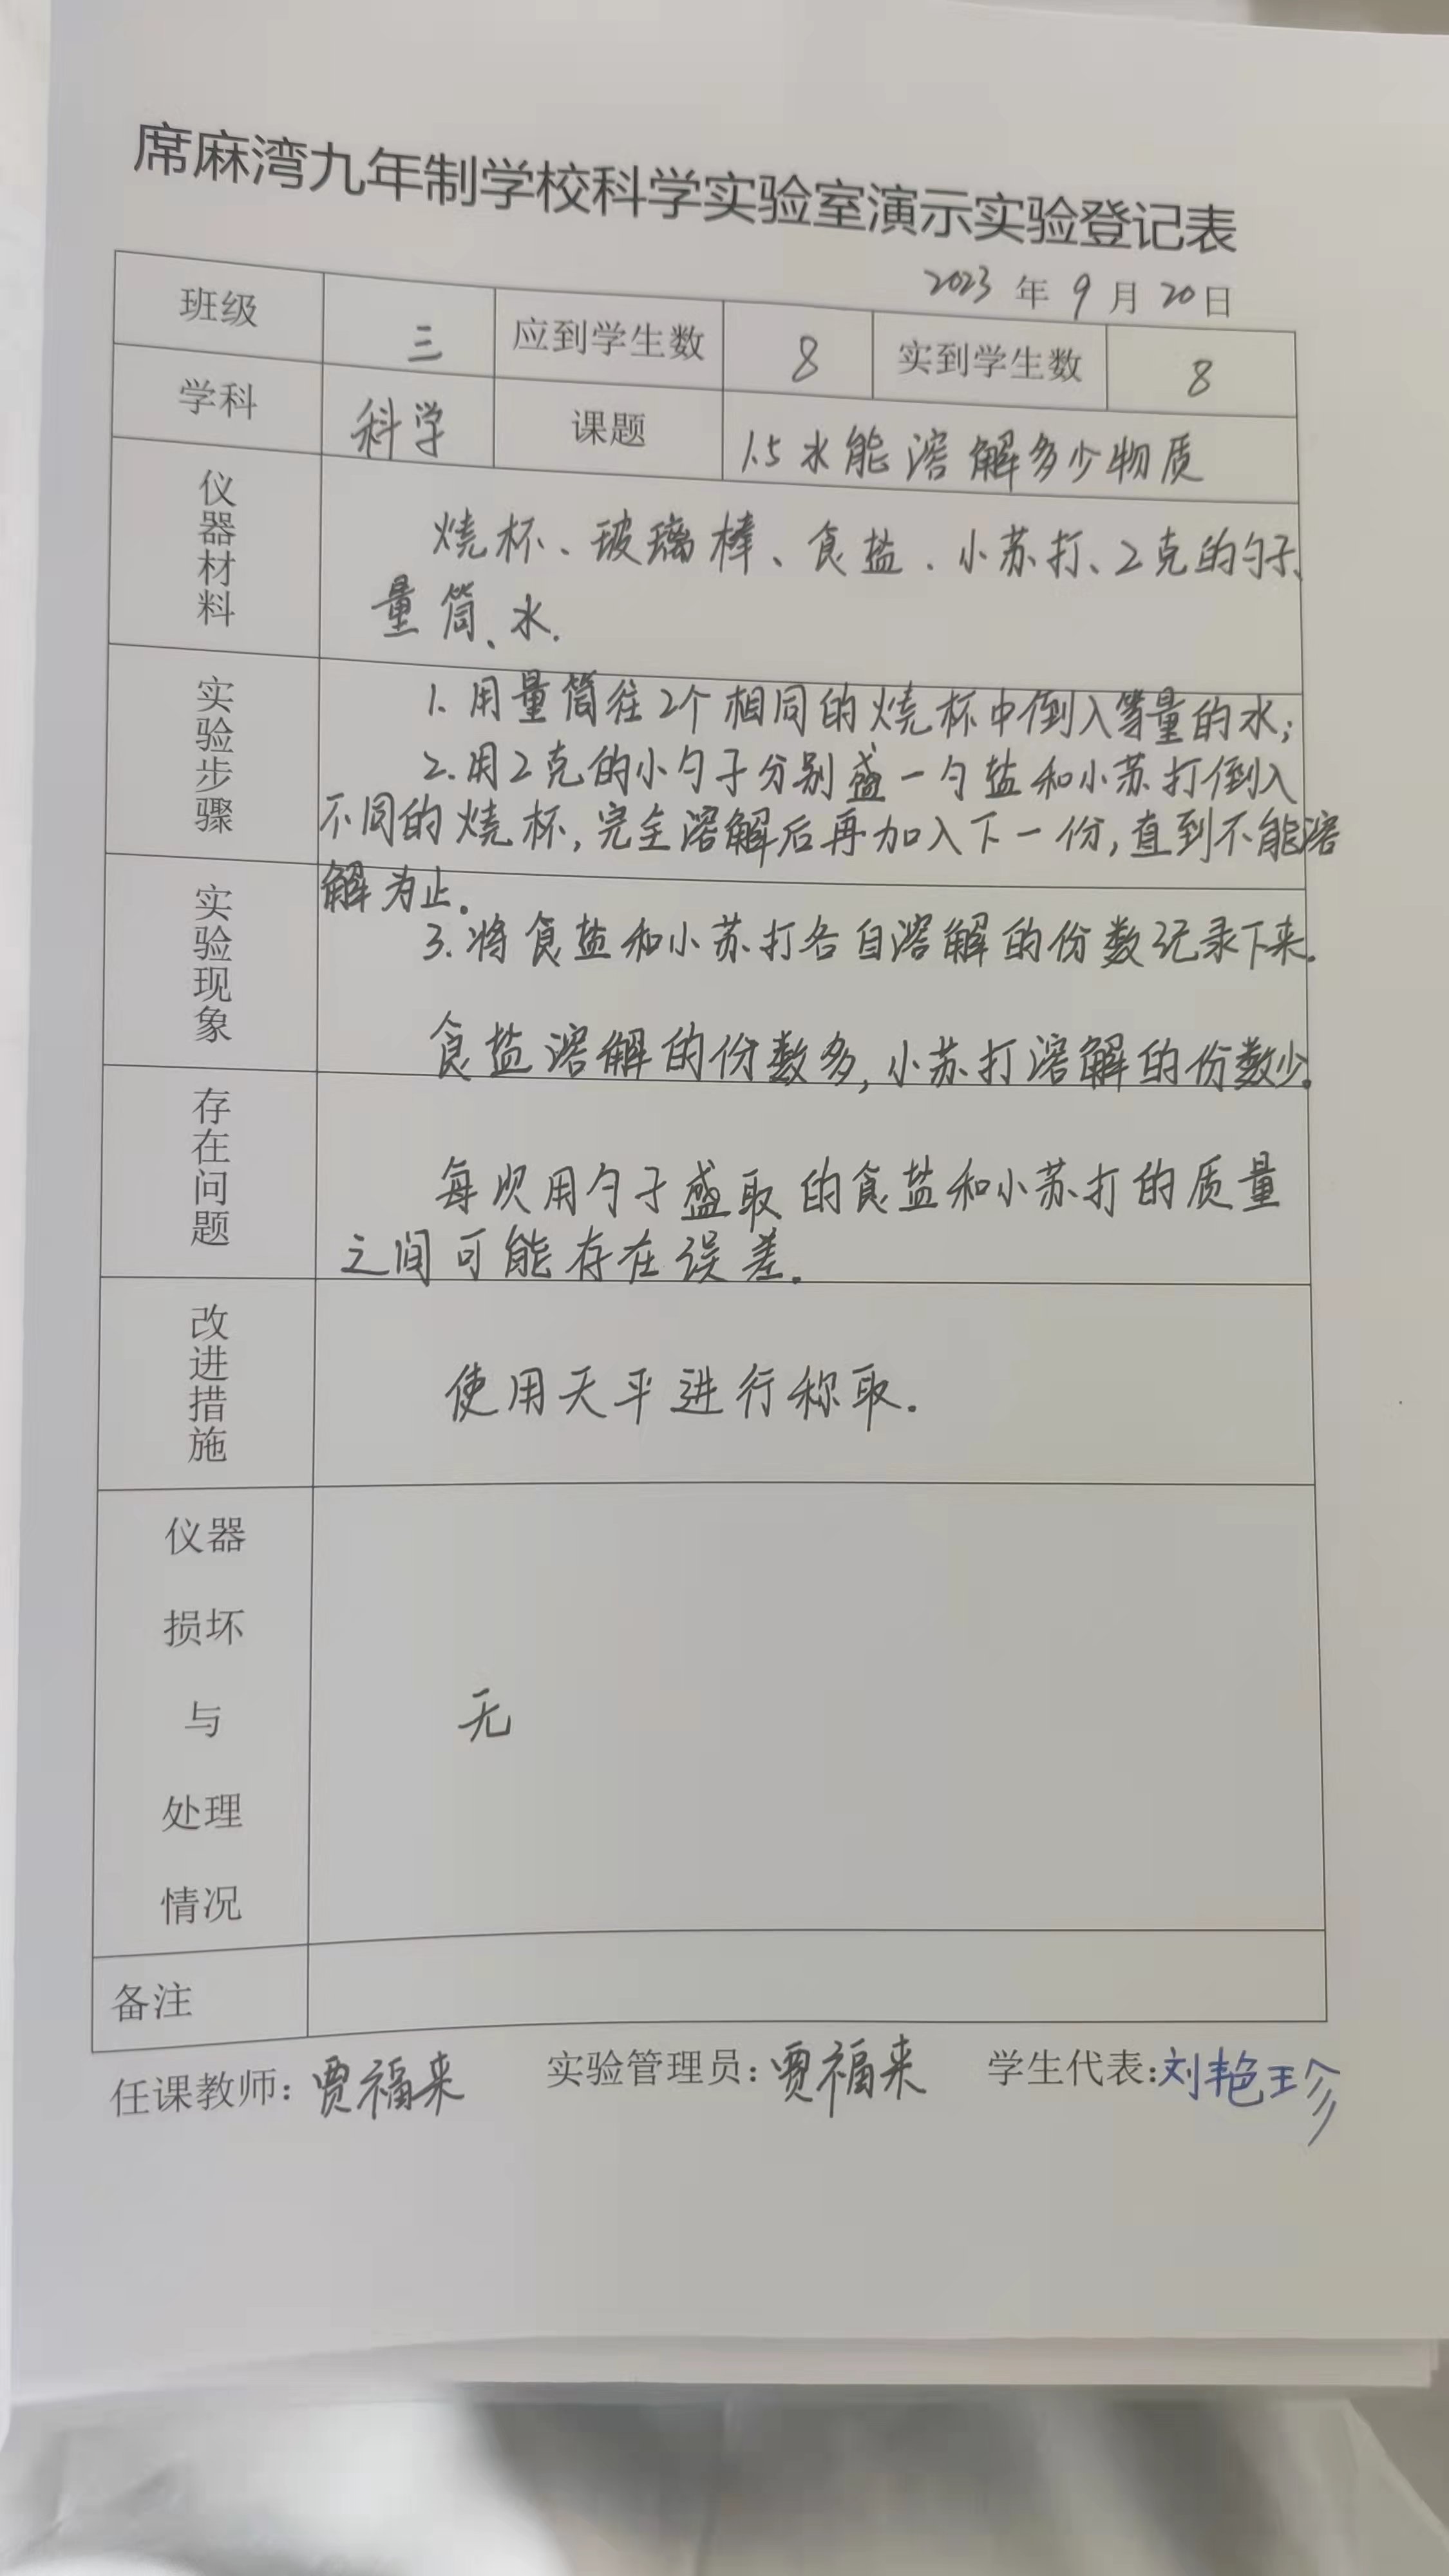 席麻湾九年制学校科学实验室演示实验登记表
2023 年 9 月 20 日
班级 三 应到学生数 8 实到学生数 8
学科 科学 课题 1.5 水能溶解多少物质
仪器材料
烧杯、玻璃棒、食盐、小苏打、2克的勺子、
量筒、水.
实验步骤
1. 用量筒往2个相同的烧杯中倒入等量的水;
2. 用2克的小勺子分别盛一勺盐和小苏打倒入
不同的烧杯,完全溶解后再加入下一份,直到不能溶
解为止.
3. 将食盐和小苏打各自溶解的份数记录下来.
实验现象
食盐溶解的份数多,小苏打溶解的份数少.
存在问题
每次用勺子盛取的食盐和小苏打的质量
之间可能存在误差.
改进措施
使用天平进行称取.
仪器
损坏
与
处理
情况
无
备注
任课教师: 贾福来 实验管理员: 贾福来 学生代表: 刘艳珍